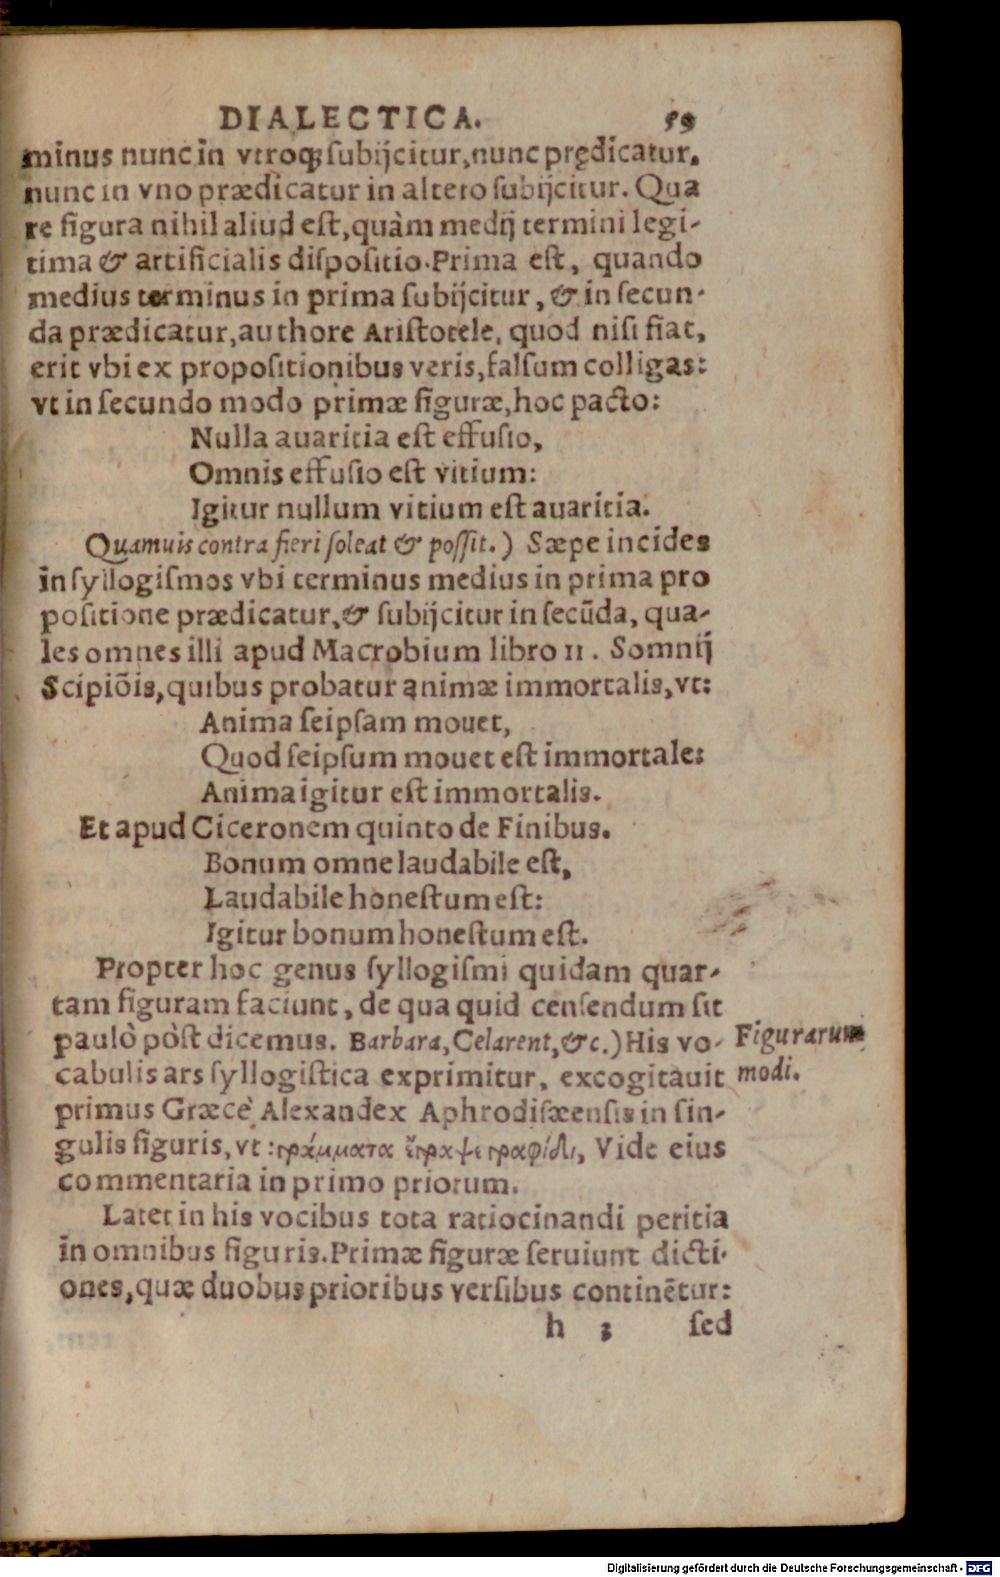 DIALECTICA. 59
minus nunc in vtroq; subijcitur, nunc prędicatur.
nunc in vno prædicatur in altero subijcitur. Qua
re figura nihil aliud est, quàm medij termini legi-
tima & artificialis dispositio. Prima est, quando
medius terminus in prima subijcitur, & in secun-
da prædicatur, authore Aristotele, quod nisi fiat,
erit vbi ex propositionibus veris, falsum colligas:
vt in secundo modo primæ figuræ, hoc pacto:
Nulla auaritia est effusio,
Omnis effusio est vitium:
Igitur nullum vitium est auaritia.
Quamuis contra fieri soleat & possit.) Sæpe incides
in syllogismos vbi terminus medius in prima pro
positione prædicatur, & subijcitur in secūda, qua-
les omnes illi apud Macrobium libro 11. Somnij
Scipiōis, quibus probatur animæ immortalis, vt:
Anima seipsam mouet,
Quod seipsum mouet est immortale:
Anima igitur est immortalis.
Et apud Ciceronem quinto de Finibus.
Bonum omne laudabile est,
Laudabile honestum est:
Igitur bonum honestum est.
Propter hoc genus syllogismi quidam quar-
tam figuram faciunt, de qua quid censendum sit
paulò pòst dicemus. Barbara, Celarent, &c.) His vo-
Figurarum
modi.
cabulis ars syllogistica exprimitur, excogitauit
primus Græcè Alexandex Aphrodisæensis in sin-
gulis figuris, vt: γράμματα ἔγραψε γραφίδι, Vide eius
commentaria in primo priorum.
Latet in his vocibus tota ratiocinandi peritia
in omnibus figuris. Primæ figuræ seruiunt dicti-
ones, quæ duobus prioribus versibus continētur:
h 3 sed
Digitalisierung gefördert durch die Deutsche Forschungsgemeinschaft - DFG